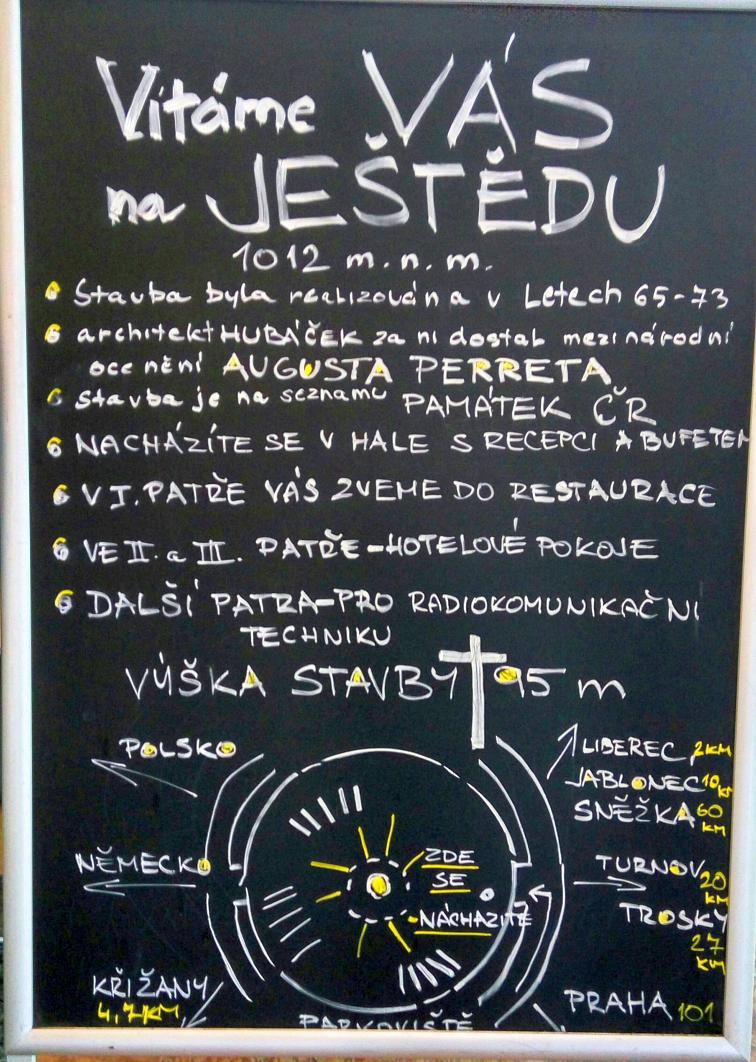 Vítáme VÁS
na JEŠTĚDU
1012 m.n.m.
Stavba byla realizována v Letech 65-73
architekt HUBÁČEK za ni dostal mezinárodní
ocenění AUGUSTA PERRETA
Stavba je na seznamu PAMÁTEK ČR
NACHÁZÍTE SE V HALE S RECEPCÍ A BUFETEM
V I. PATŘE VÁS ZVEME DO RESTAURACE
VE II. a III. PATŘE-HOTELOVÉ POKOJE
DALŠÍ PATRA-PRO RADIOKOMUNIKAČNÍ
TECHNIKU
VÝŠKA STAVBY 95 m
POLSKO
LIBEREC 2KM
JABLONEC 10 KM
SNĚŽKA 60 KM
NĚMECKO
ZDE
SE
NACHÁZÍTE
TURNOV 20 KM
TROSKY 27 KM
KŘIŽANY
4,7KM
PARKOVIŠTĚ
PRAHA 101